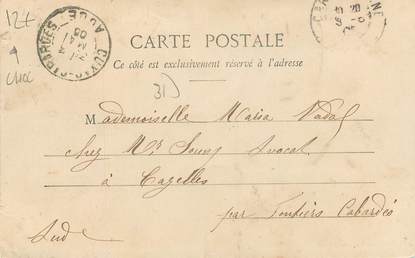 12€
CHOC
CUXAC-CABARDÈS
AUDE
CARTE POSTALE
Ce côté est exclusivement réservé à l'adresse
31)
Mademoiselle Maria Nadal
chez Mr Avocat
à Cazelles
par Fontiers Cabardès
Aude